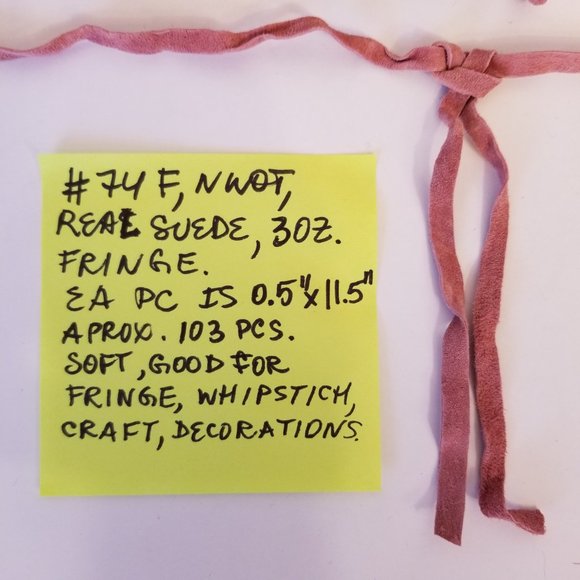 #74 F, NWOT,
REAL SUEDE, 3OZ.
FRINGE.
EA PC IS 0.5"x11.5"
APROX. 103 PCS.
SOFT, GOOD FOR
FRINGE, WHIPSTICH,
CRAFT, DECORATIONS.